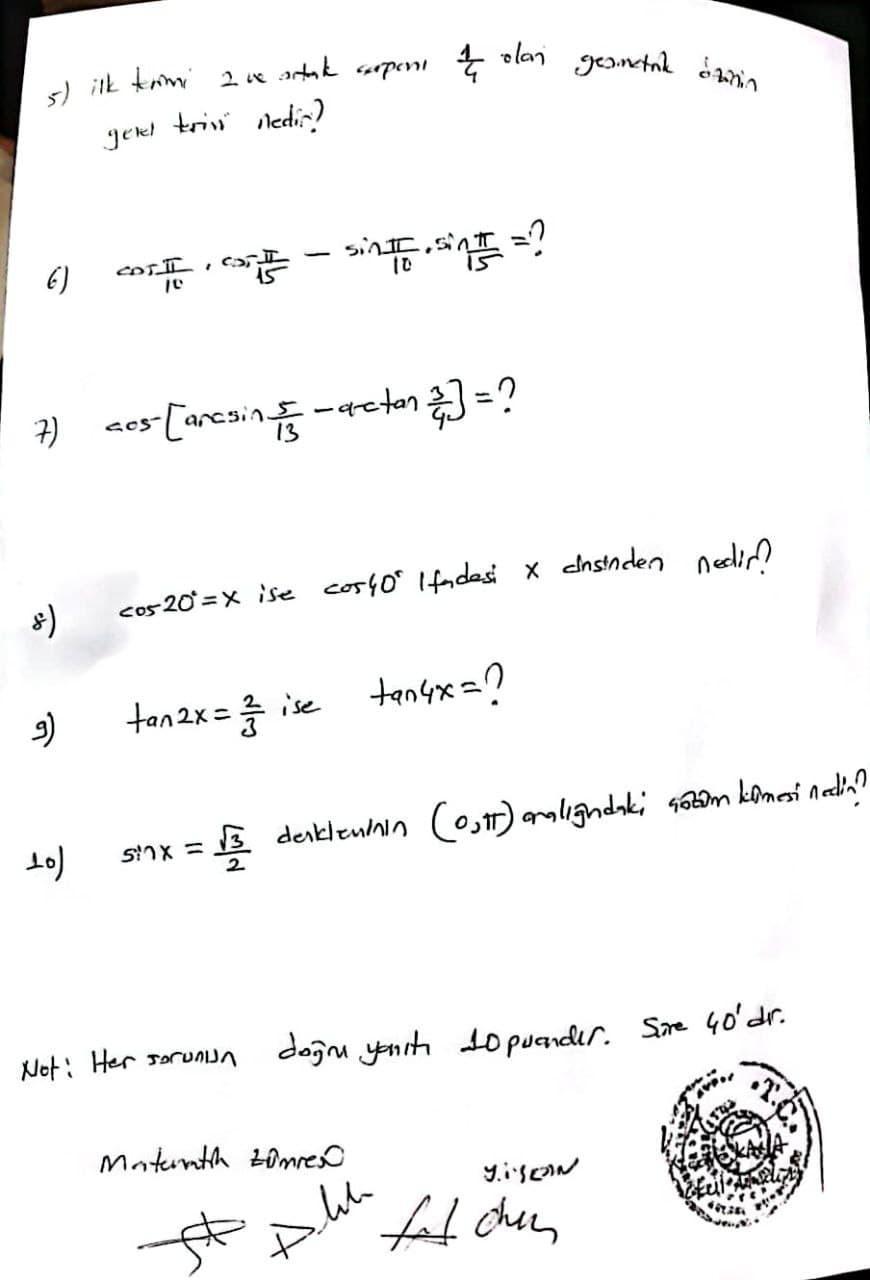 5) ilk terimi 2 ve ortak çarpanı 1/4 olan geometrik dizinin
genel terimi nedir?
6) cos π/10 . cos π/15 − sin π/10 . sin π/15 = ?
7) cos [arcsin 5/13 − arctan 3/4] = ?
8) cos 20° = x ise cos 40° ifadesi x cinsinden nedir?
9) tan2x = 2/3 ise tan4x = ?
10) sinx = √3/2 denkleminin (0, π) aralığındaki çözüm kümesi nedir?
Not: Her sorunun doğru yanıtı 10 puandır. Süre 40' dır.
Matematik Zümresi
T.C.